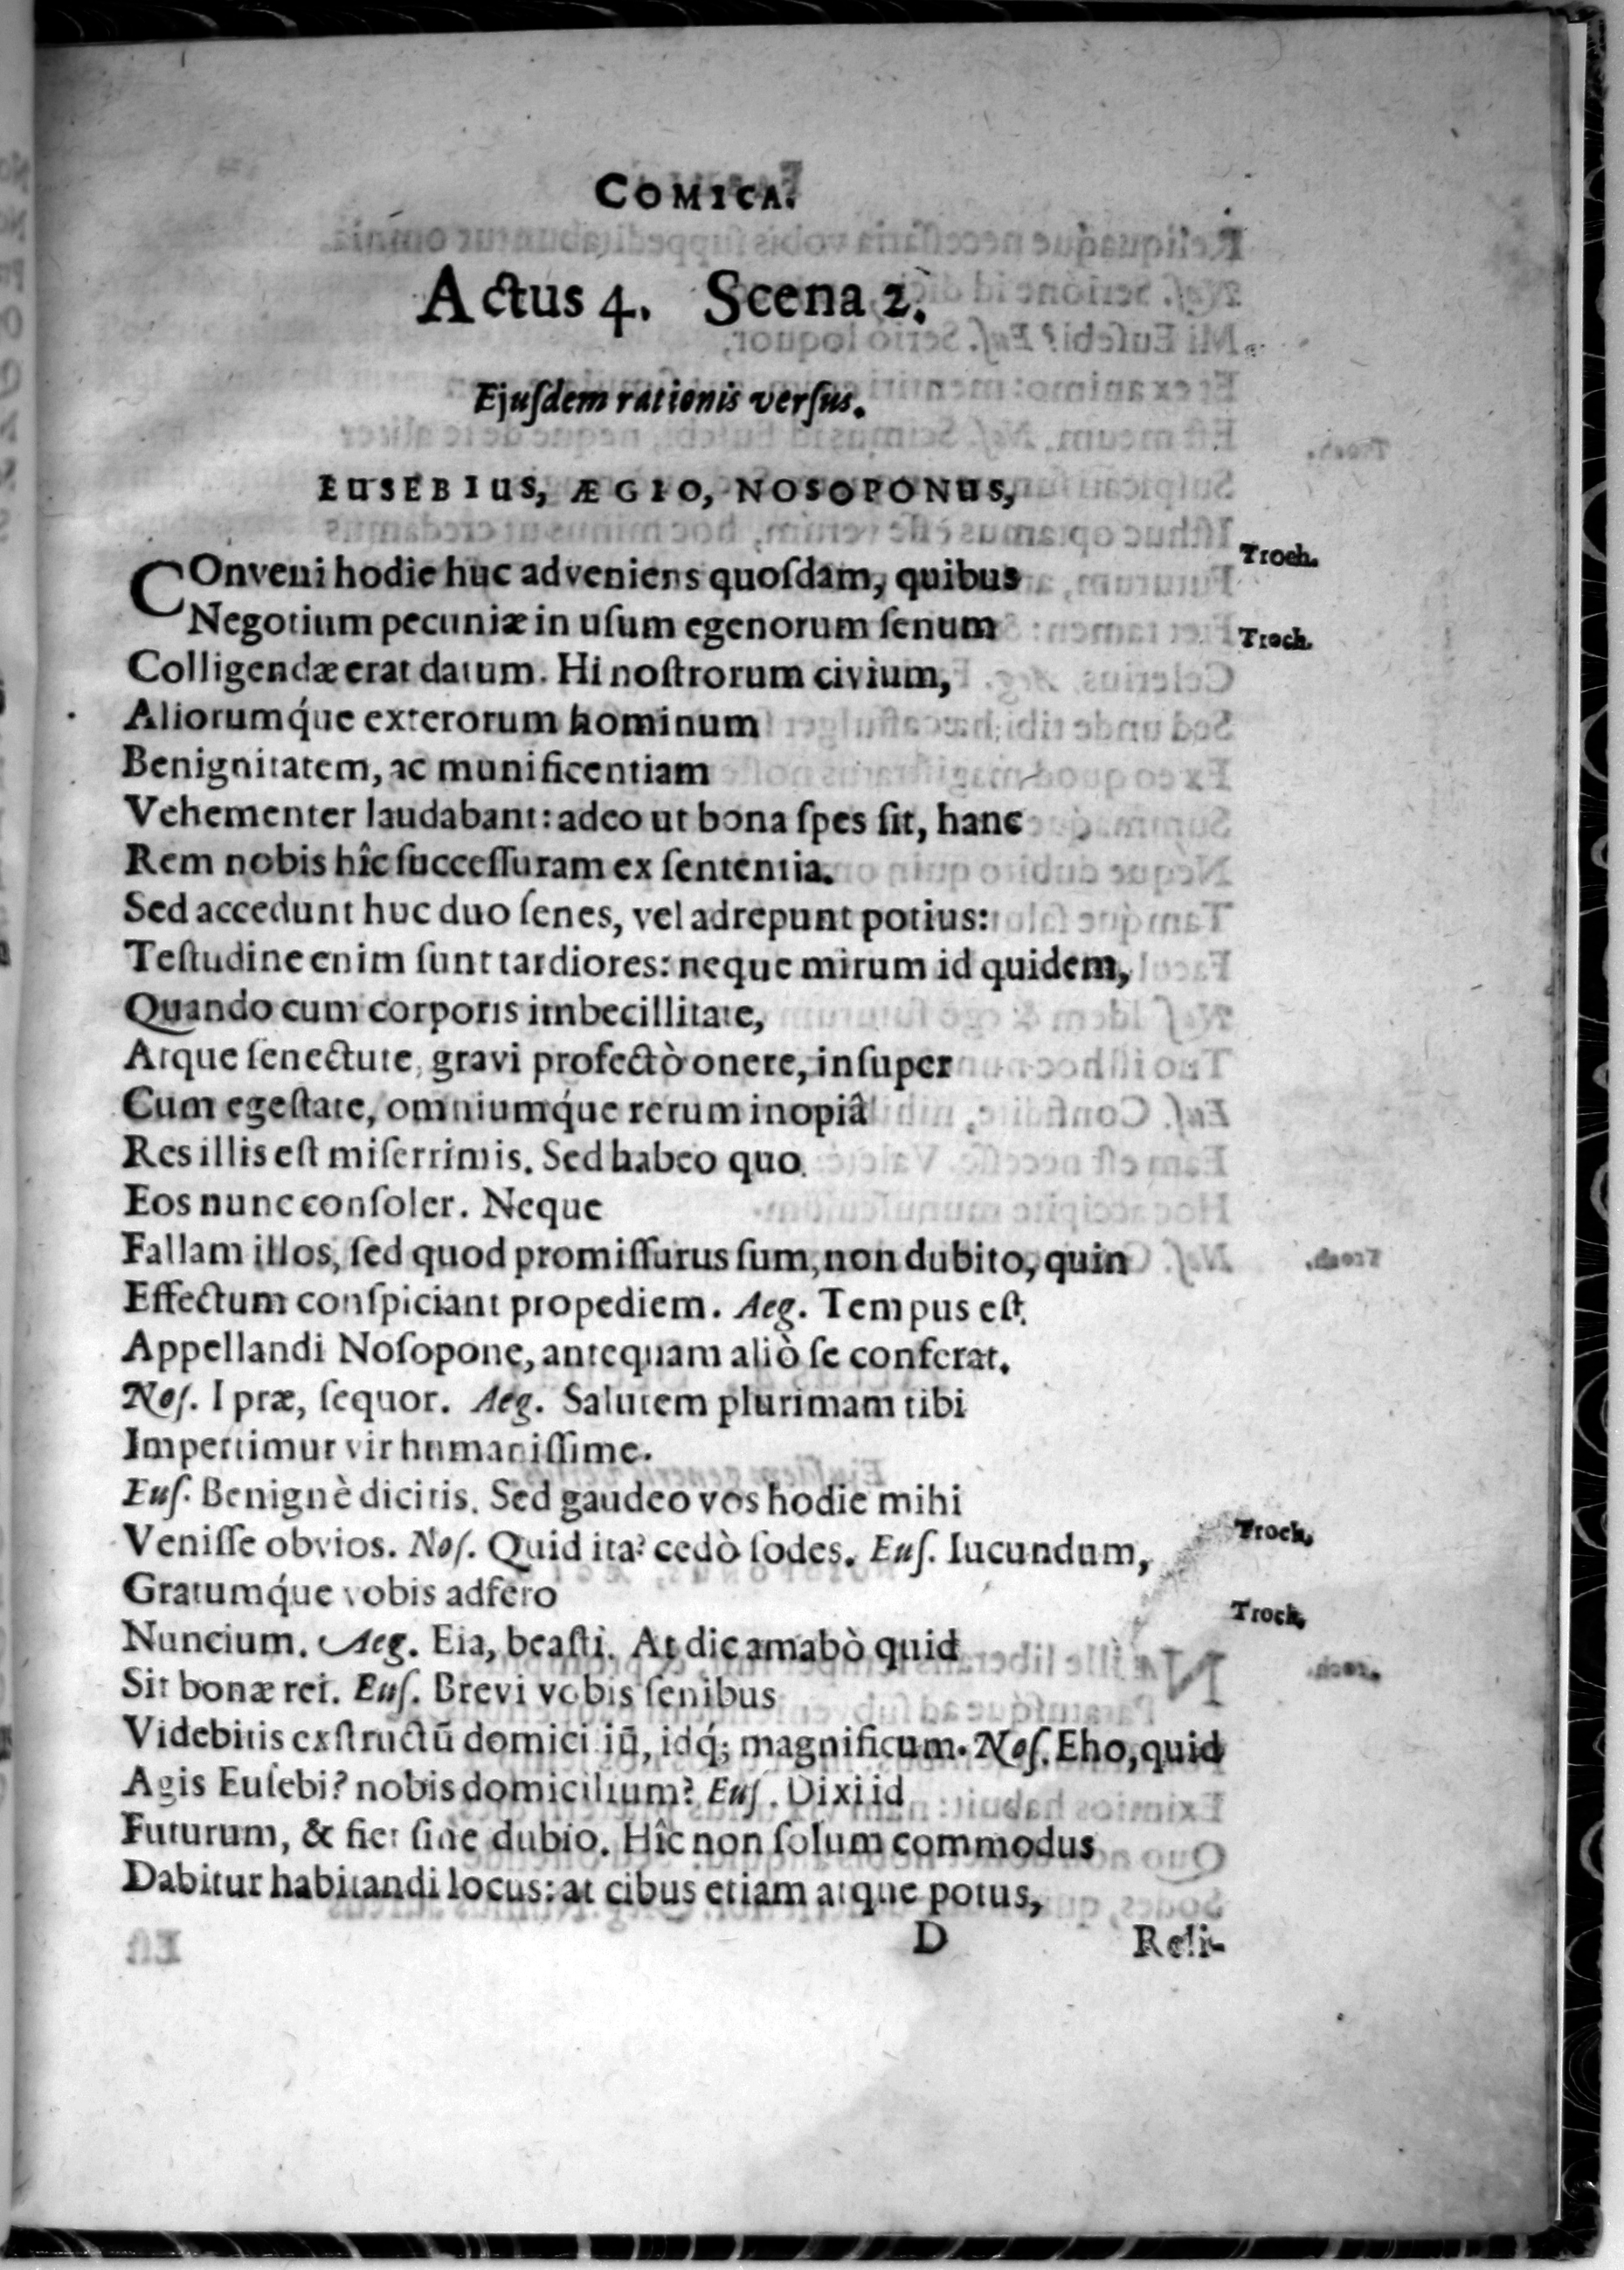 COMICA.
Actus 4. Scena 2.
Ejuſdem rationis verſus.
EUSEBIUS, ÆGIO, NOSOPONUS,
COnveni hodie huc adveniens quoſdam, quibus Troch.
Negotium pecuniæ in uſum egenorum ſenum Troch.
Colligendæ erat datum. Hi noſtrorum civium,
Aliorumq́ue exterorum hominum
Benignitatem, ac munificentiam
Vehementer laudabant: adeo ut bona ſpes ſit, hanc
Rem nobis hîc ſucceſſuram ex ſententia.
Sed accedunt huc duo ſenes, vel adrepunt potius:
Teſtudine enim ſunt tardiores: neque mirum id quidem,
Quando cum corporis imbecillitate,
Atque ſenectute, gravi profectò onere, inſuper
Cum egeſtate, omniumq́ue rerum inopiâ
Res illis eſt miſerrimis. Sed habeo quo
Eos nunc conſoler. Neque
Fallam illos, ſed quod promiſſurus ſum, non dubito, quin
Effectum conſpiciant propediem. Aeg. Tempus eſt
Appellandi Noſopone, antequam aliò ſe conferat.
Noſ. I præ, ſequor. Aeg. Salutem plurimam tibi
Impertimur vir humaniſſime.
Euſ. Benignè dicitis. Sed gaudeo vos hodie mihi
Veniſſe obvios. Noſ. Quid ita? cedò ſodes. Euſ. Iucundum, Troch.
Gratumq́ue vobis adfero
Nuncium. Aeg. Eia, beaſti. At dic amabò quid Troch.
Sit bonæ rei. Euſ. Brevi vobis ſenibus
Videbitis exſtructū domiciliū, idq́; magnificum. Noſ. Eho, quid
Agis Euſebi? nobis domicilium? Euſ. Dixi id
Futurum, & fiet ſine dubio. Hîc non ſolum commodus
Dabitur habitandi locus: at cibus etiam atque potus,
D Reli-